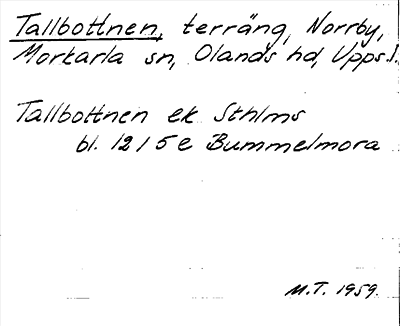 Tallbottnen, terräng, Norrby,
Morkarla sn, Olands hd, Upps.l.
Tallbottnen ek Sthlms
bl. 12 I 5 e Bummelmora
M.T. 1959.